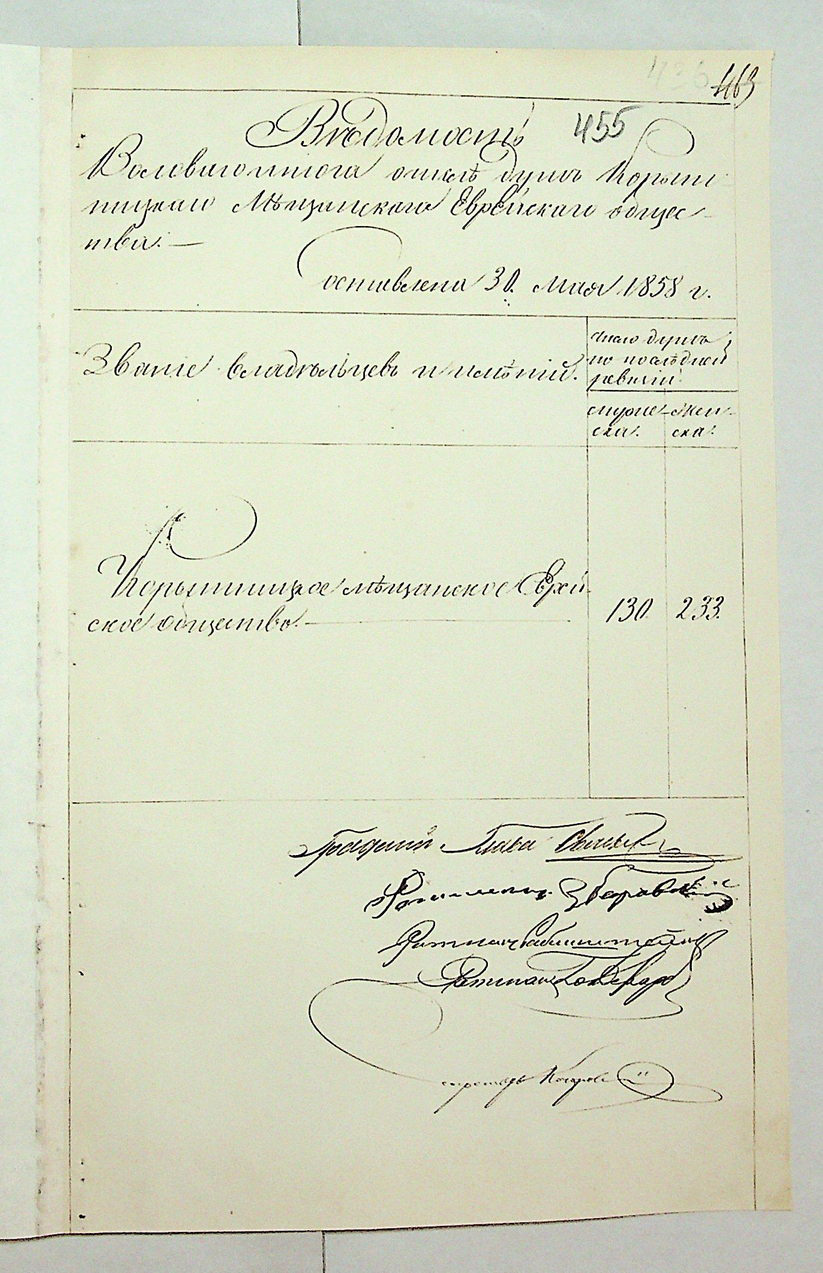 436 463
Вѣдомость 455
Валоваго итога о числѣ душъ Корыт
ницкаго Мѣщанскаго Еврейскаго общес-
тва.
Составлена 30. Мая 1858 г.
Званіе владѣльцевъ и имѣній.
Число душъ
по послѣдней
ревизіи
мужес-
ка.
жен-
ска.
Корытницкое мѣщанское Еврей
ское общество.
130. 233.
Градскій Глава
Ратман
Ратман
Ратман